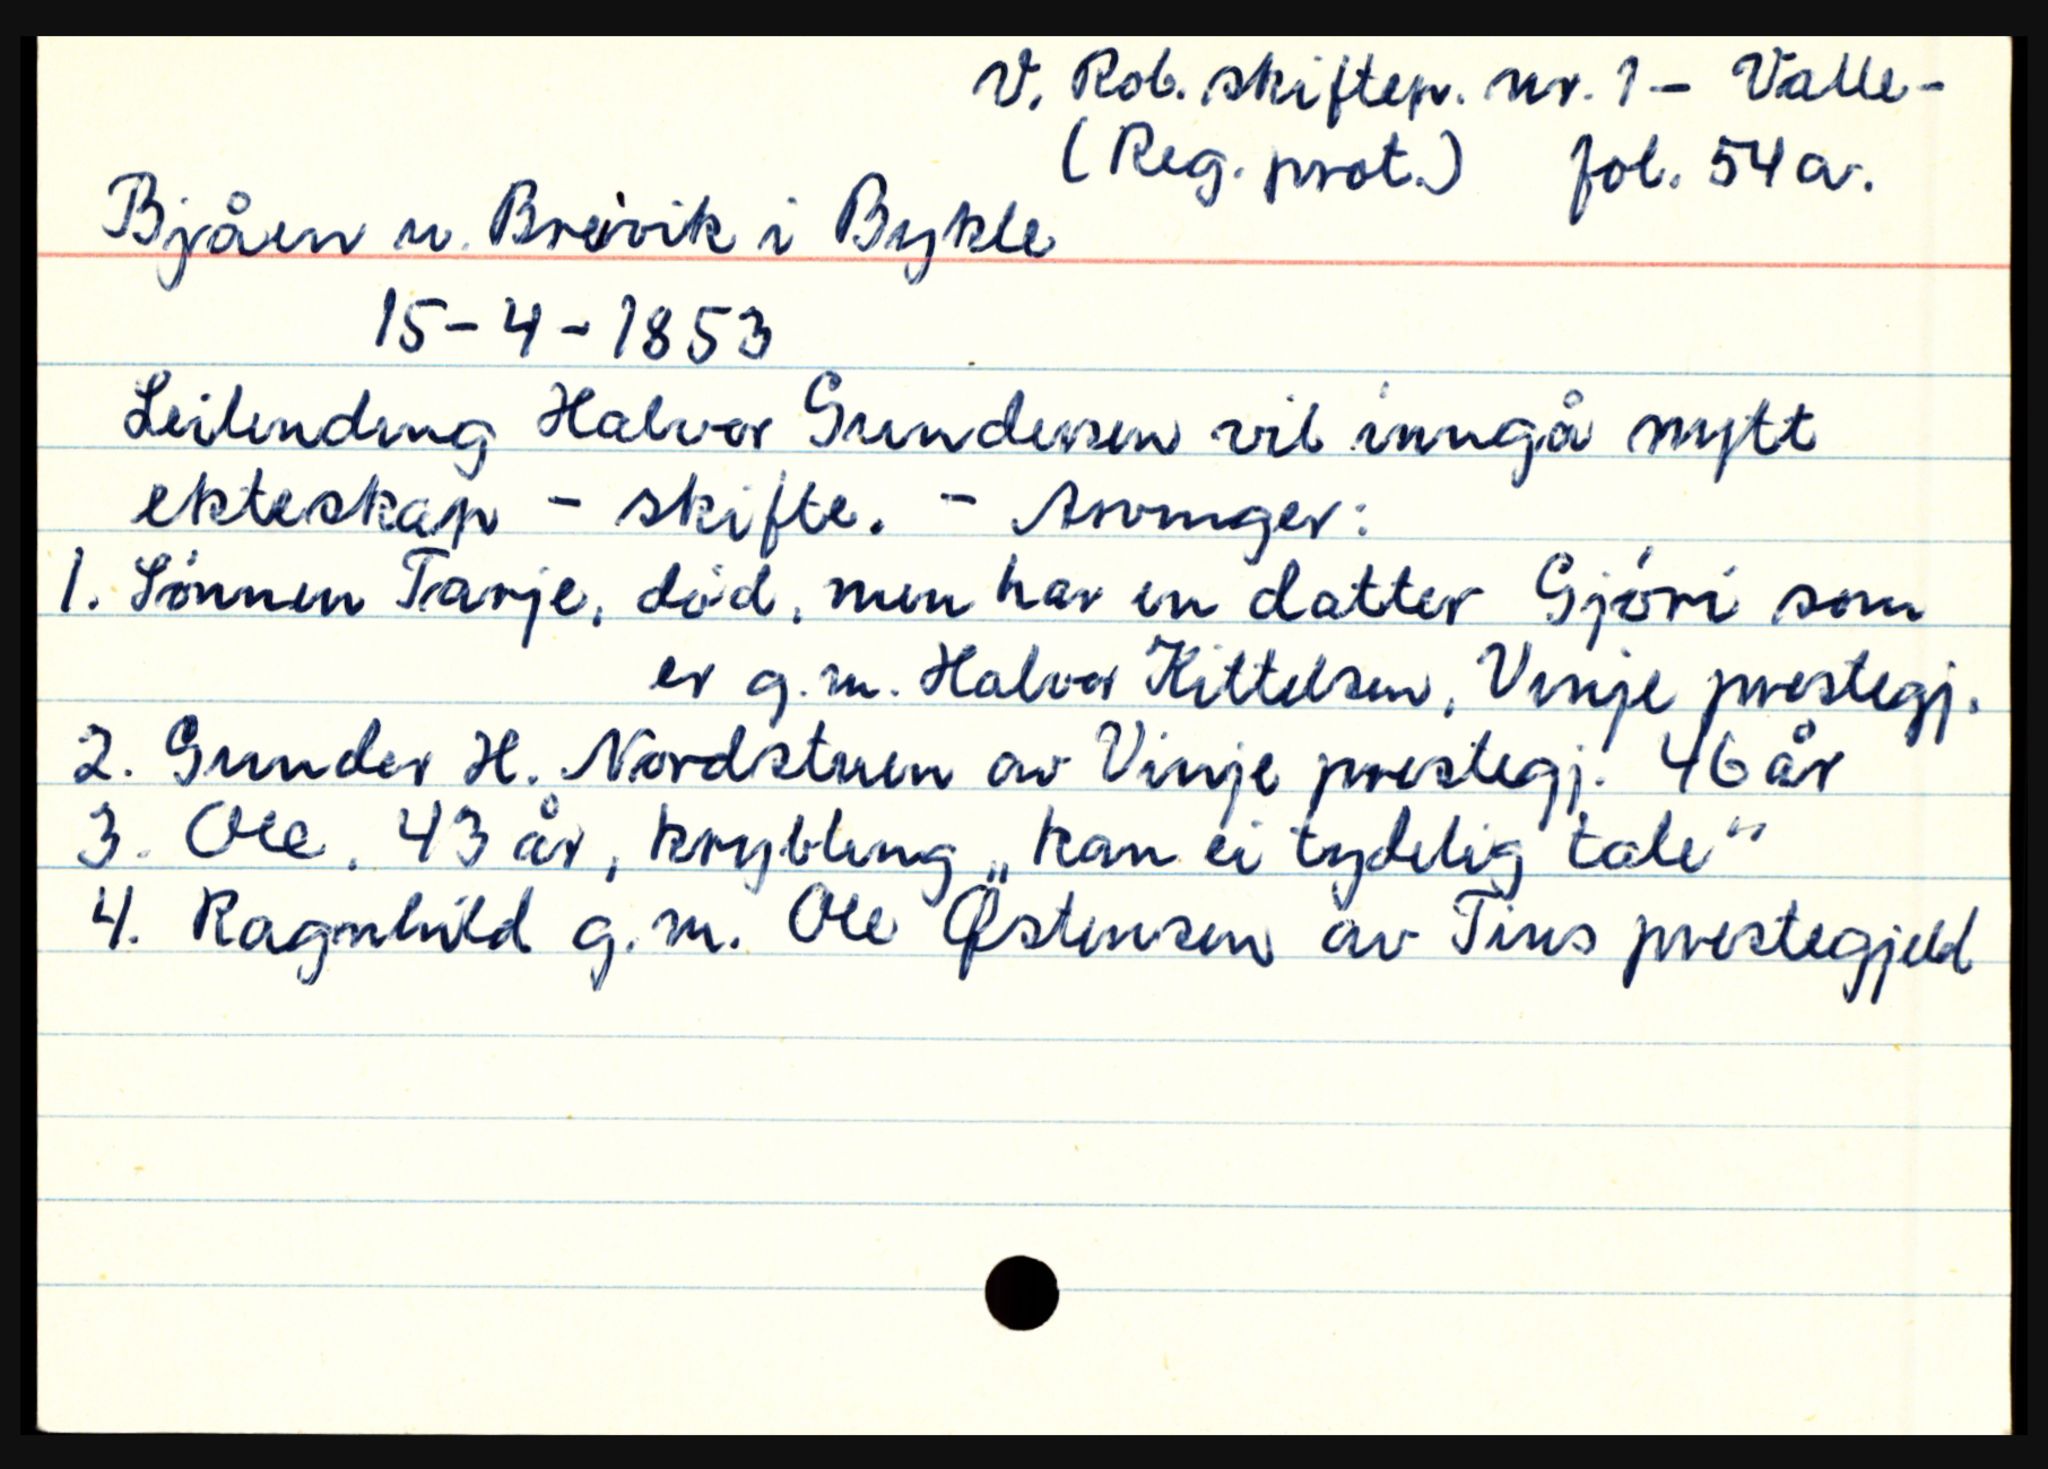 V. Rob. skiftepr. nr. 1 - Valle -
(Reg. prot.) fol. 54a.
Bjåen u. Breivik i Bykle
15-4-1853
Leilending Halvor Gundersen vil inngå nytt
ekteskap - skifte. - Arvinger:
1. Sønnen Tarje, død, men har en datter Gjöri som
er g.m. Halvor Kittelsen, Vinje prestegj.
2. Gunder H. Nordstuen av Vinje prestegj. 46 år
3. Ole, 43 år, krybling „kan ei tydelig tale"
4. Ragnhild g.m. Ole Østensen av Tins prestegjeld